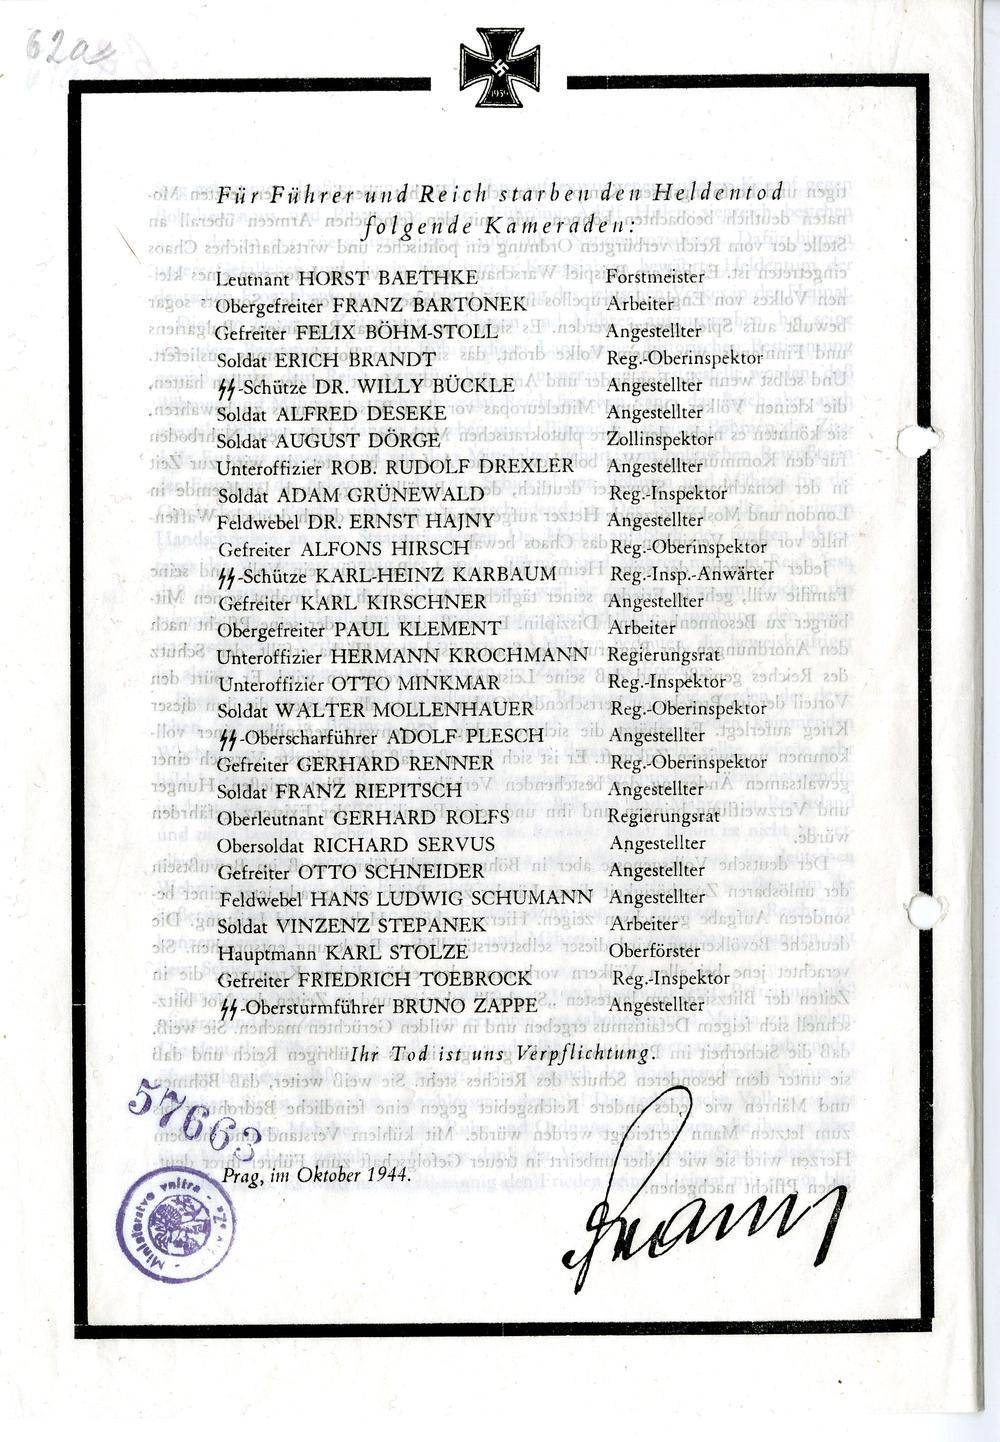 62a
1939
Für Führer und Reich starben den Heldentod
folgende Kameraden:
Leutnant HORST BAETHKE Forstmeister
Obergefreiter FRANZ BARTONEK Arbeiter
Gefreiter FELIX BÖHM-STOLL Angestellter
Soldat ERICH BRANDT Reg.-Oberinspektor
SS-Schütze DR. WILLY BÜCKLE Angestellter
Soldat ALFRED DESEKE Angestellter
Soldat AUGUST DÖRGE Zollinspektor
Unteroffizier ROB. RUDOLF DREXLER Angestellter
Soldat ADAM GRÜNEWALD Reg.-Inspektor
Feldwebel DR. ERNST HAJNY Angestellter
Gefreiter ALFONS HIRSCH Reg.-Oberinspektor
SS-Schütze KARL-HEINZ KARBAUM Reg.-Insp.-Anwärter
Gefreiter KARL KIRSCHNER Angestellter
Obergefreiter PAUL KLEMENT Arbeiter
Unteroffizier HERMANN KROCHMANN Regierungsrat
Unteroffizier OTTO MINKMAR Reg.-Inspektor
Soldat WALTER MOLLENHAUER Reg.-Oberinspektor
SS-Oberscharführer ADOLF PLESCH Angestellter
Gefreiter GERHARD RENNER Reg.-Oberinspektor
Soldat FRANZ RIEPITSCH Angestellter
Oberleutnant GERHARD ROLFS Regierungsrat
Obersoldat RICHARD SERVUS Angestellter
Gefreiter OTTO SCHNEIDER Angestellter
Feldwebel HANS LUDWIG SCHUMANN Angestellter
Soldat VINZENZ STEPANEK Arbeiter
Hauptmann KARL STOLZE Oberförster
Gefreiter FRIEDRICH TOEBROCK Reg.-Inspektor
SS-Obersturmführer BRUNO ZAPPE Angestellter
Ihr Tod ist uns Verpflichtung.
57663
Prag, im Oktober 1944.
Ministerstvo vnitra